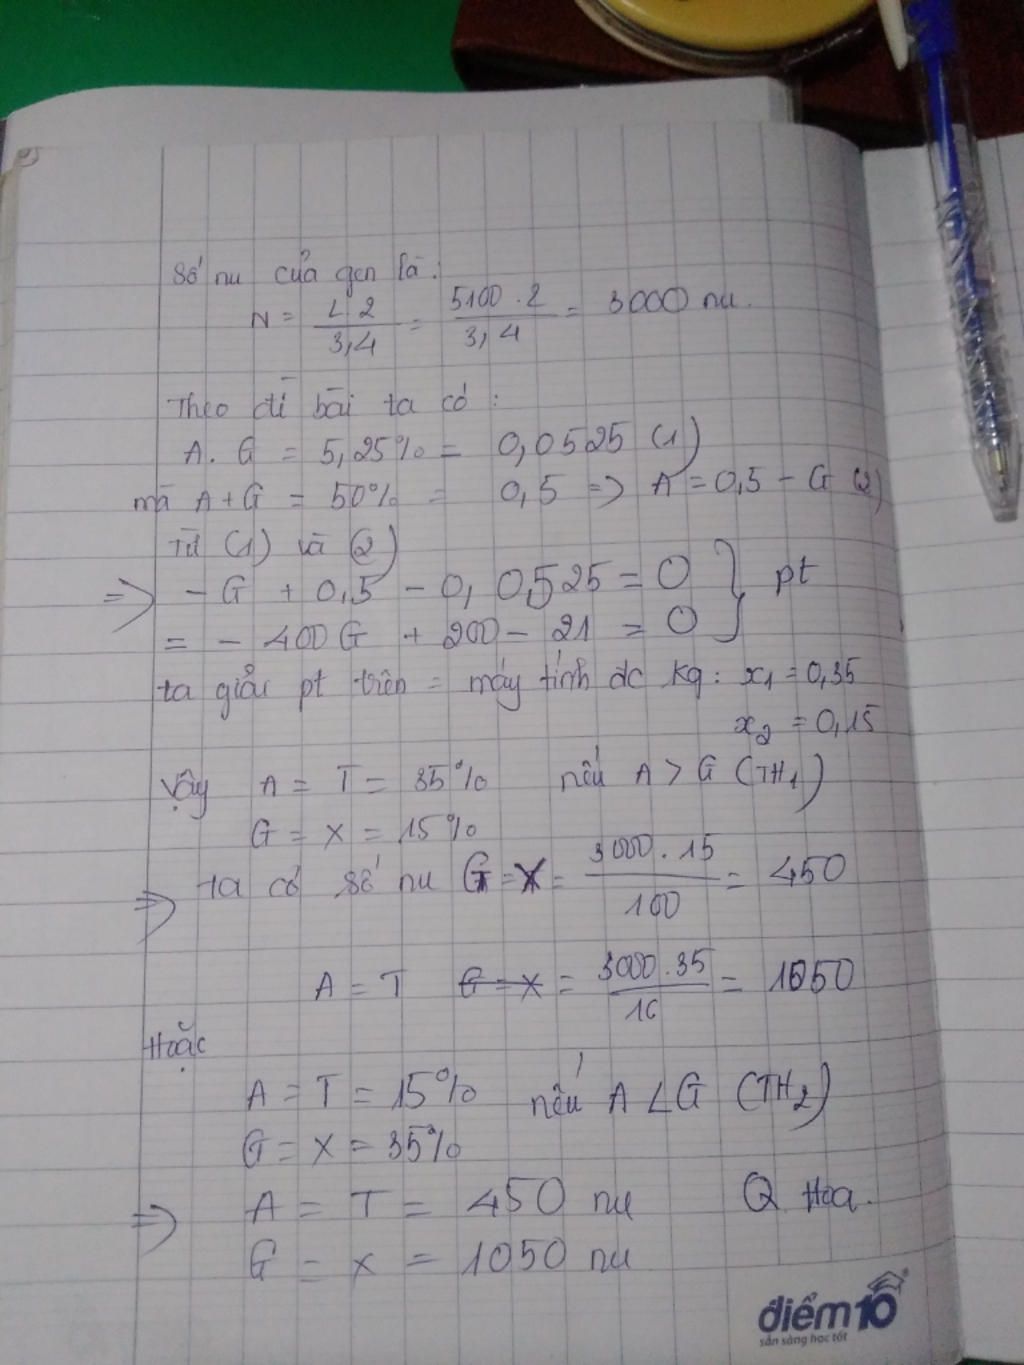 Số nu của gen là:
N = L 2 / 3,4 = 5100 . 2 / 3,4 = 3000 nu.
Theo đề bài ta có :
A. G = 5,25% = 0,0525 (1)
mà A+G = 50% = 0,5 => A = 0,5 - G (2)
Từ (1) và (2)
=> - G + 0,5 - 0,0525 = 0 } pt
= - 400G + 200 - 21 = 0
ta giải pt trên = máy tính đc kq: x1 = 0,35
x2 = 0,15
Vậy A = T = 35% nếu A > G (TH1)
G = X = 15%
=> ta có số nu G = X = 3000 . 15 / 100 = 450
A = T G = X = 3000 . 35 / 10 = 1050
Hoặc
A = T = 15% nếu A < G (TH2)
G = X = 35%
=> A = T = 450 nu Q Hoa.
G = X = 1050 nu
điểm 10
sẵn sàng học tốt